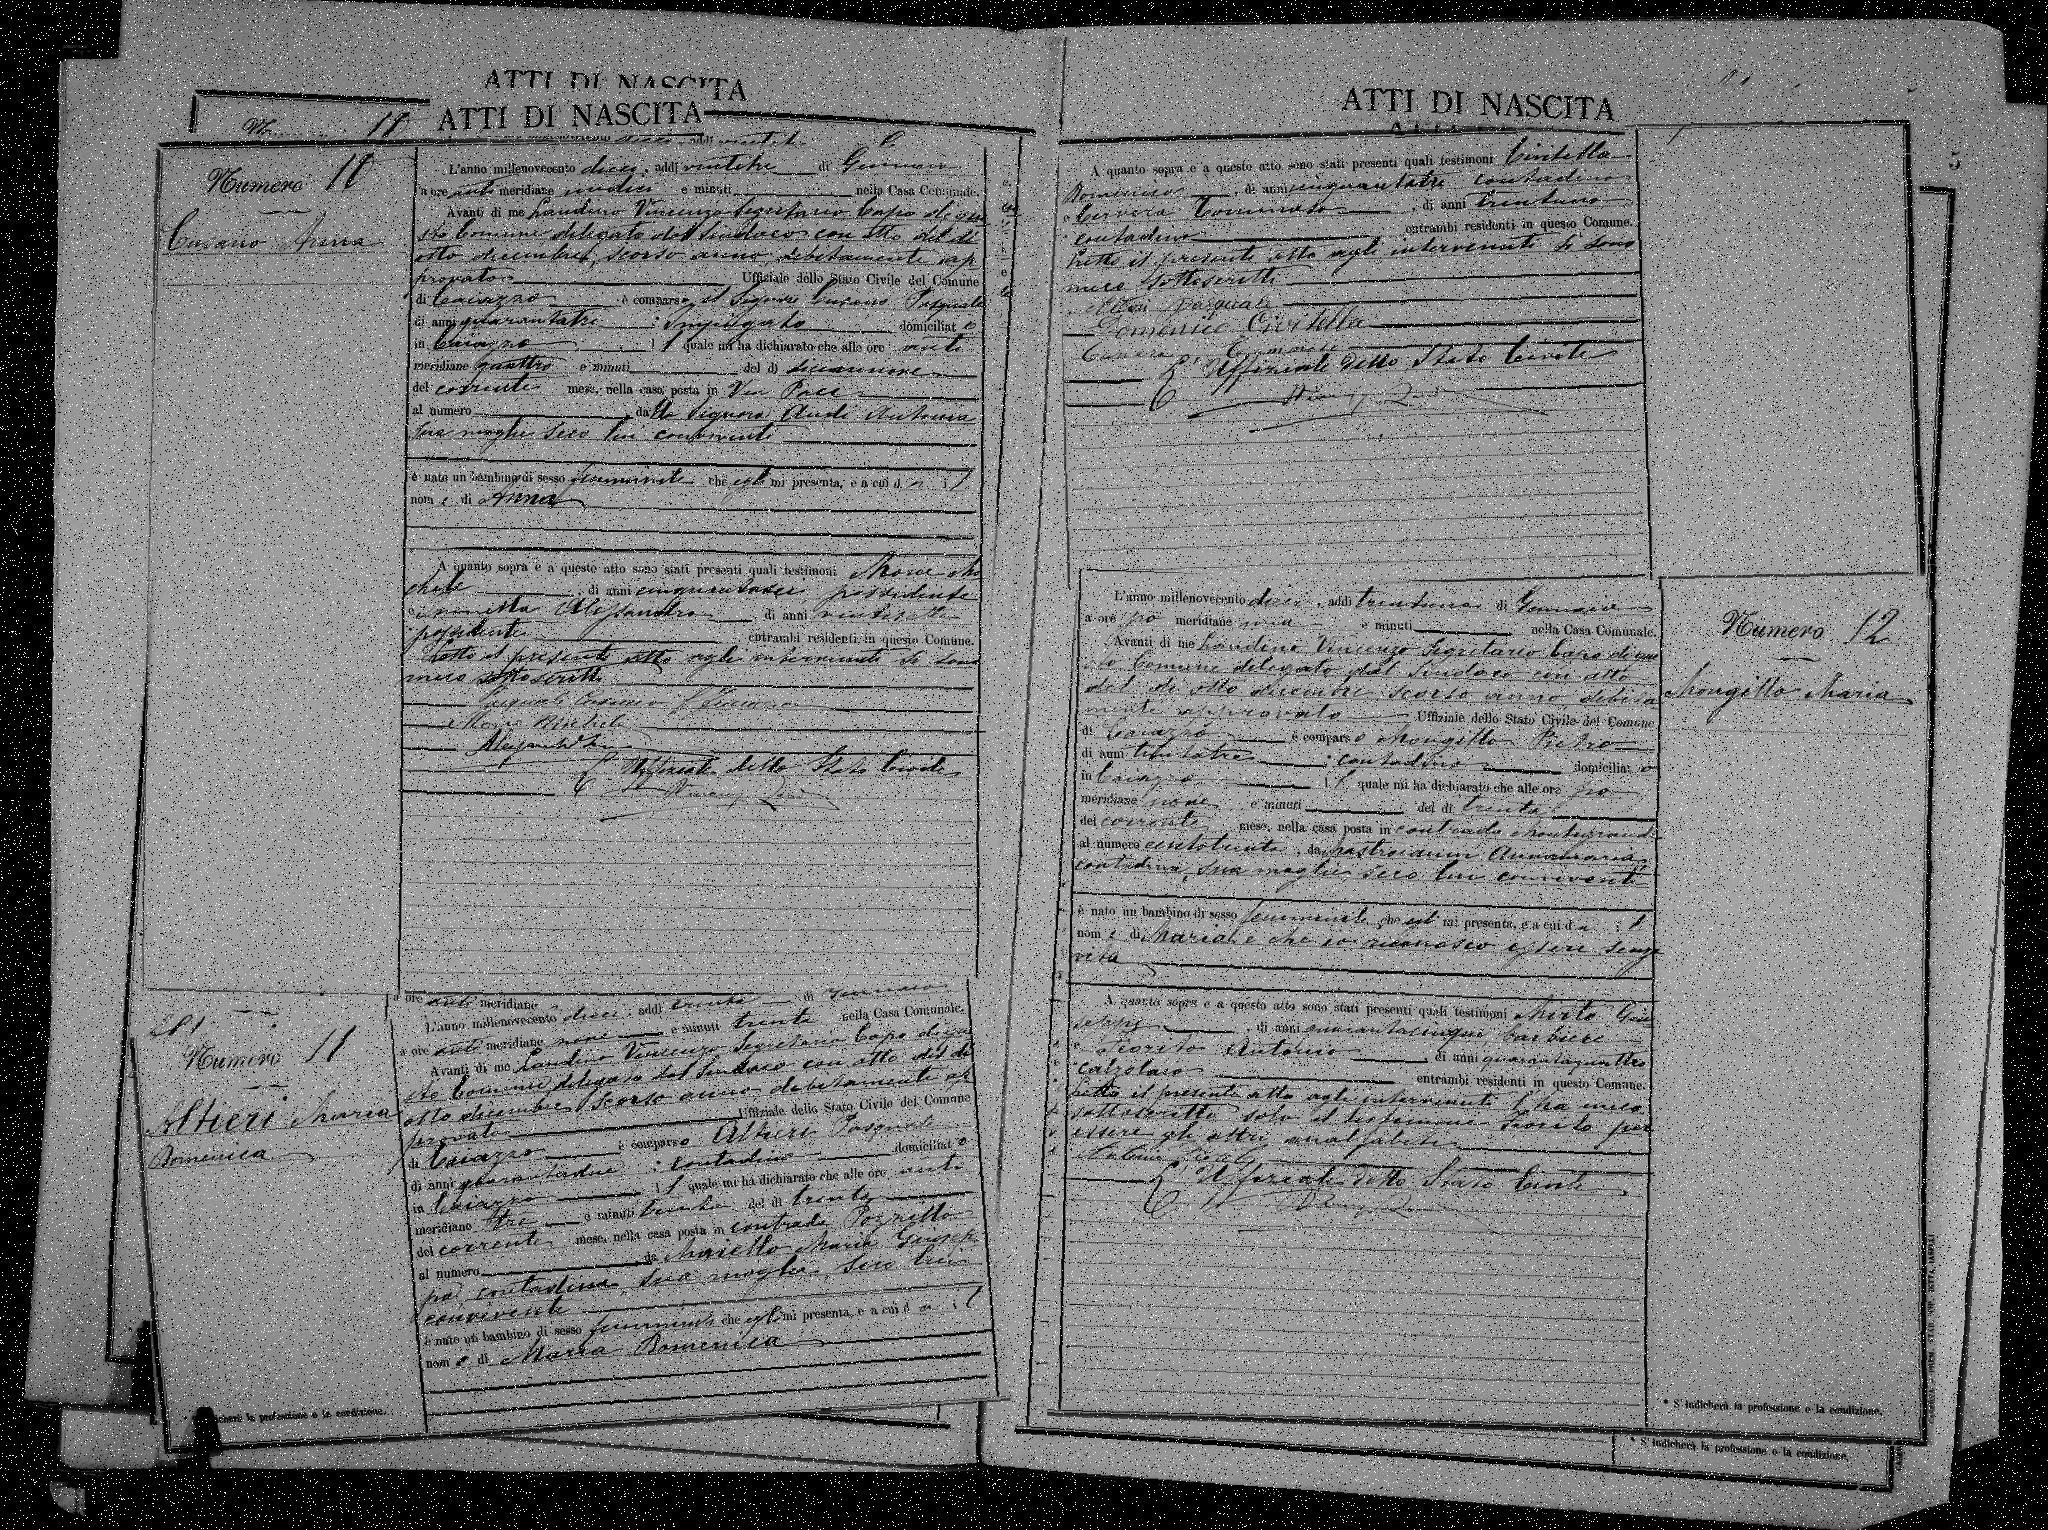 ATTI DI NASCITA
ATTI DI NASCITA
Numero 10
Cusano Anna
L'anno millenovecento dieci, addì ventitre di Gennaio
a ore anti meridiane undici e minuti nella Casa Comunale.
Avanti di me Landino Vincenzo Segretario Capo di que
sto Comune delegato dal Sindaco con atto del dì
otto dicembre, scorso anno, debitamente ap
provato Uffiziale dello Stato Civile del Comune
di Caiazzo è comparso il Signor Cusano Pasquale
di anni quarantatre Impiegato domiciliato
in Caiazzo il quale mi ha dichiarato che alle ore anti
meridiane quattro e minuti del dì diciannove
del corrente mese, nella casa posta in Via Pace
al numero dalla Signora Antonia
sua moglie seco lui convivente
è nato un bambino di sesso femminile che egli mi presenta, e a cui dà il
nome di Anna
A quanto sopra e a questo atto sono stati presenti quali testimoni Mone Mi
chele, di anni cinquantasei possidente
Alessandro, di anni
possidente entrambi residenti in questo Comune.
Letto il presente atto agli intervenuti si sono
meco sottoscritti
Pasquale Cusano
Mone Michele
L'Uffiziale dello Stato Civile
Numero 11
Altieri Maria
Domenica
a ore anti meridiane
L'anno millenovecento dieci, addì trenta di Gennaio
a ore anti meridiane nove e minuti trenta nella Casa Comunale.
Avanti di me Landino Vincenzo Segretario Capo di que
sto Comune delegato dal Sindaco con atto del dì
otto dicembre scorso anno debitamente ap
provato Uffiziale dello Stato Civile del Comune
di Caiazzo è comparso Altieri Pasquale
di anni quarantadue, contadino domiciliato
in Caiazzo il quale mi ha dichiarato che alle ore anti
meridiane tre e minuti trenta del dì trenta
del corrente mese, nella casa posta in contrada Pozzillo
al numero da Masello Maria Giusep
pa contadina, sua moglie, seco lui
convivente
è nato un bambino di sesso femminile che egli mi presenta, e a cui dà il
nome di Maria Domenica
la professione o la condizione.
ATTI DI NASCITA
A quanto sopra e a questo atto sono stati presenti quali testimoni Civitella
Domenico, di anni cinquantatre contadino
e Cervera Tommaso, di anni trentuno
contadino entrambi residenti in questo Comune.
Letto il presente atto agli intervenuti si sono
meco sottoscritti
Altieri Pasquale
Domenico Civitella
L'Uffiziale dello Stato Civile
Numero 12
Mongillo Maria
L'anno millenovecento dieci, addì trentuno di Gennaio
a ore po meridiane una e minuti nella Casa Comunale.
Avanti di me Landino Vincenzo Segretario Capo di que
sto Comune delegato dal Sindaco con atto
del dì otto dicembre scorso anno debita
mente approvato Uffiziale dello Stato Civile del Comune
di Caiazzo è comparso Mongillo Pietro
di anni trentatre, contadino domiciliato
in Caiazzo il quale mi ha dichiarato che alle ore po
meridiane nove e minuti del dì trenta
del corrente mese, nella casa posta in contrada Montegrande
al numero centotrenta, da Mastroianni Annamaria
contadina, sua moglie, seco lui convivente
è nato un bambino di sesso femminile che egli mi presenta, e a cui dà il
nome di Maria, e che io riconosco essere senza
vita
A quanto sopra e a questo atto sono stati presenti quali testimoni Mirto Giu
seppe, di anni quarantacinque, barbiere
e Fiorito Antonio, di anni quarantaquattro
calzolaio entrambi residenti in questo Comune.
Letto il presente atto agli intervenuti l'ha meco
sottoscritto solo il testimone Fiorito per
essere gli altri analfabeti
Antonio Fiorito
L'Uffiziale dello Stato Civile
* S'indicherà la professione o la condizione.
* S'indicherà la professione o la condizione.